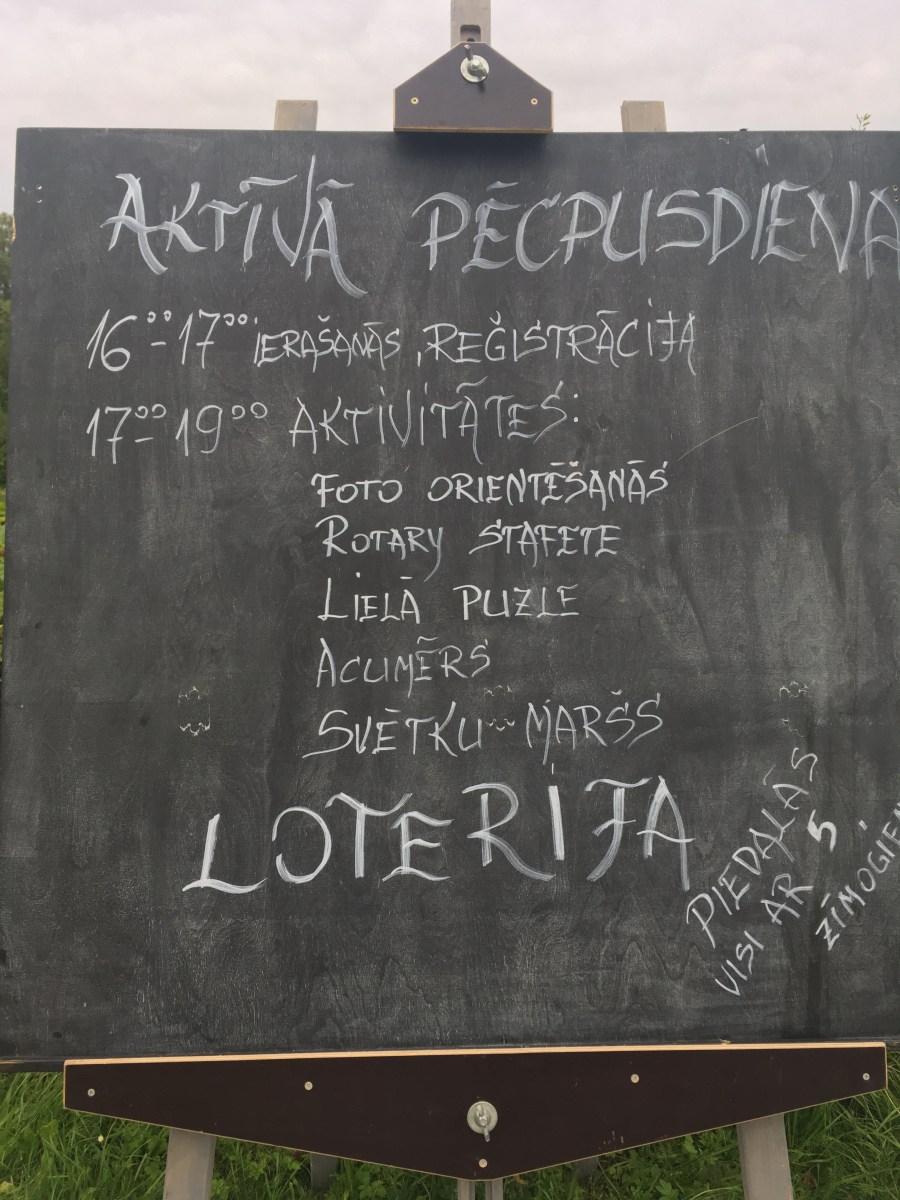 AKTĪVĀ PĒCPUSDIENA
16⁰⁰-17⁰⁰ IERAŠANĀS, REĢISTRĀCIJA
17⁰⁰-19⁰⁰ AKTIVITĀTES:
FOTO ORIENTĒŠANĀS
ROTARY STAFETE
LIELĀ PUZLE
ACUMĒRS
SVĒTKU MARŠS
LOTERIJA
PIEDALĀS
VISI AR 5